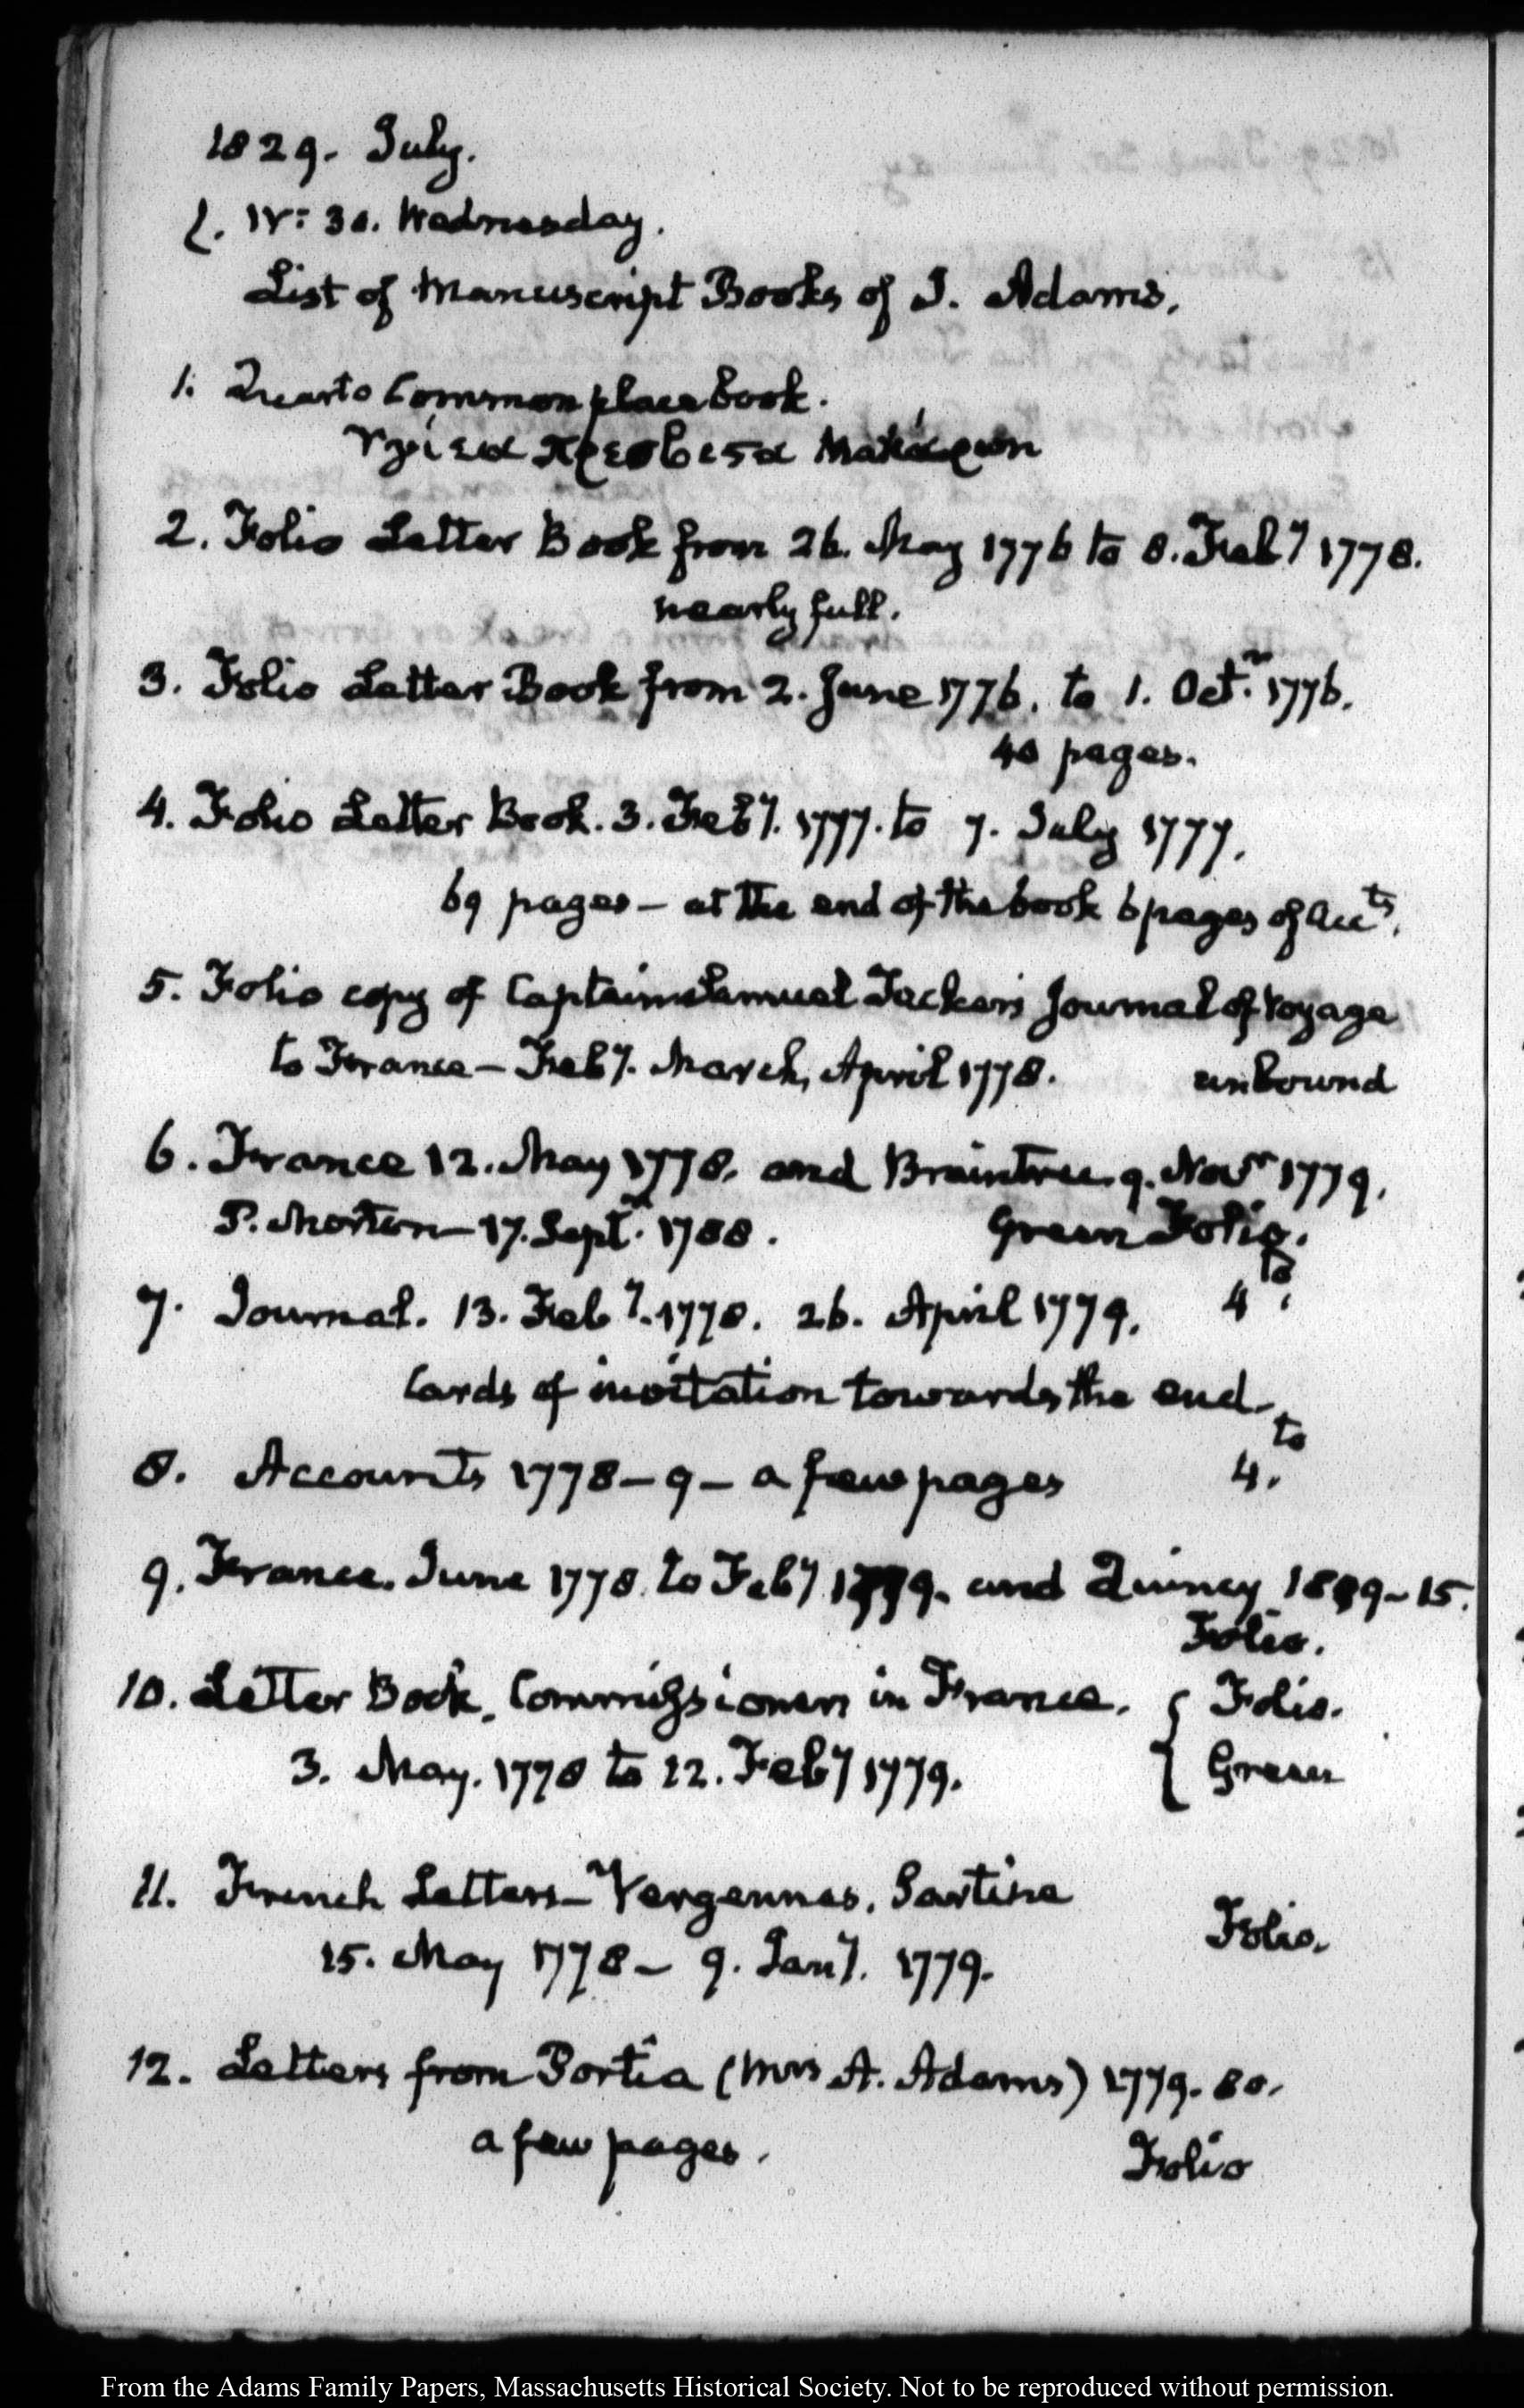 1829. July.
1. IV: 30. Wednesday.
List of Manuscript Books of J. Adams.
1. Quarto Common place book.
2. Folio Letter Book from 26. May 1776 to 8. Feby 1778.
nearly full.
3. Folio Letter Book from 2. June 1776. to 1. Octr. 1776.
40 pages.
4. Folio Letter Book. 3. Feby. 1777. to 7. July 1777.
69 pages — at the end of the book 6 pages of Accts.
5. Folio copy of Captain Samuel Tucker's Journal of Voyage
to France — Feby. March, April 1778. unbound
6. France 12. May 1778. and Braintree 9. Novr 1779.
P. Morton — 17. Septr. 1788. Green Folio.
7. Journal. 13. Feby. 1778. 26. April 1779. 4to.
Cards of invitation towards the end.
8. Accounts 1778-9 — a few pages 4.to
9. France. June 1778. to Feby 1779. and Quincy 1809-15.
Folio.
10. Letter Book. Commissioners in France. { Folio.
3. May. 1778 to 12. Feby 1779. { Green
11. French Letters — Vergennes, Sartine
15. May 1778 — 9. Jany. 1779. Folio.
12. Letters from Portia (Mrs A. Adams) 1779. 80.
a few pages. Folio
From the Adams Family Papers, Massachusetts Historical Society. Not to be reproduced without permission.